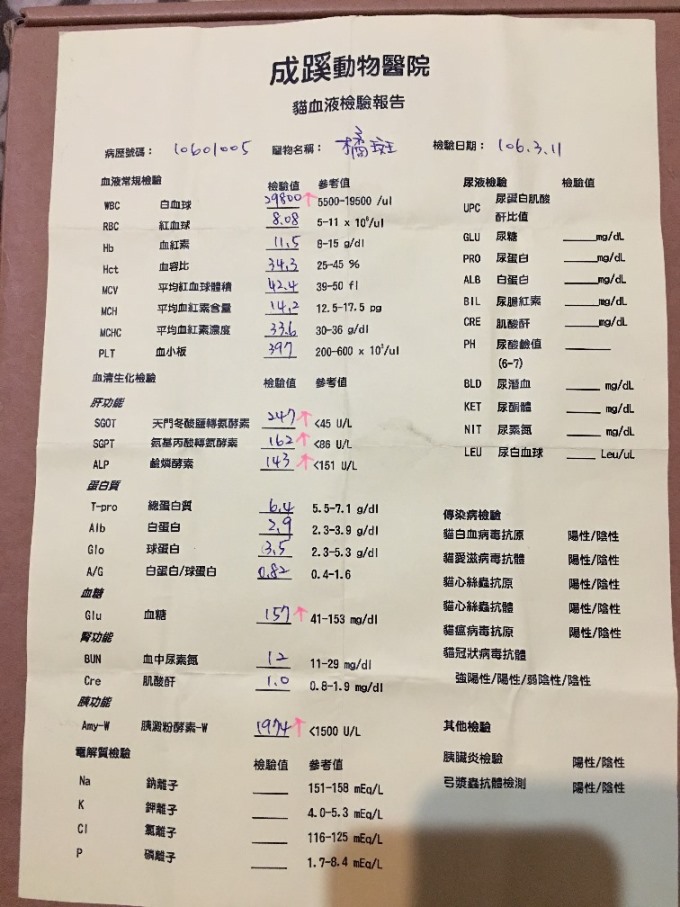 成蹊動物醫院
貓血液檢驗報告
病歷號碼： 10601005 寵物名稱： 橘斑 檢驗日期： 106.3.11
血液常規檢驗 檢驗值 參考值
WBC 白血球 29800↑ 5500-19500 /ul
RBC 紅血球 8.08 5-11 x 10⁶/ul
Hb 血紅素 11.5 8-15 g/dl
Hct 血容比 34.3 25-45 %
MCV 平均紅血球體積 42.4 39-50 fl
MCH 平均血紅素含量 14.2 12.5-17.5 pg
MCHC 平均血紅素濃度 33.6 30-36 g/dl
PLT 血小板 397 200-600 x 10³/ul
血清生化檢驗 檢驗值 參考值
肝功能
SGOT 天門冬酸鹽轉氨酵素 247↑ <45 U/L
SGPT 氨基丙酸轉氨酵素 162↑ <86 U/L
ALP 鹼燐酵素 143↑ <151 U/L
蛋白質
T-pro 總蛋白質 6.4 5.5-7.1 g/dl
Alb 白蛋白 2.9 2.3-3.9 g/dl
Glo 球蛋白 3.5 2.3-5.3 g/dl
A/G 白蛋白/球蛋白 0.82 0.4-1.6
血糖
Glu 血糖 157↑ 41-153 mg/dl
腎功能
BUN 血中尿素氮 12 11-29 mg/dl
Cre 肌酸酐 1.0 0.8-1.9 mg/dl
胰功能
Amy-W 胰澱粉酵素-W 1974↑ <1500 U/L
電解質檢驗 檢驗值 參考值
Na 鈉離子 151-158 mEq/L
K 鉀離子 4.0-5.3 mEq/L
Cl 氯離子 116-125 mEq/L
P 磷離子 1.7-8.4 mEq/L
尿液檢驗 檢驗值
UPC 尿蛋白肌酸
酐比值
GLU 尿糖 mg/dL
PRO 尿蛋白 mg/dL
ALB 白蛋白 mg/dL
BIL 尿膽紅素 mg/dL
CRE 肌酸酐 mg/dL
PH 尿酸鹼值
(6-7)
BLD 尿潛血 mg/dL
KET 尿酮體 mg/dL
NIT 尿素氮 mg/dL
LEU 尿白血球 Leu/uL
傳染病檢驗
貓白血病毒抗原 陽性/陰性
貓愛滋病毒抗體 陽性/陰性
貓心絲蟲抗原 陽性/陰性
貓心絲蟲抗體 陽性/陰性
貓瘟病毒抗原 陽性/陰性
貓冠狀病毒抗體
強陽性/陽性/弱陰性/陰性
其他檢驗
胰臟炎檢驗 陽性/陰性
弓漿蟲抗體檢測 陽性/陰性